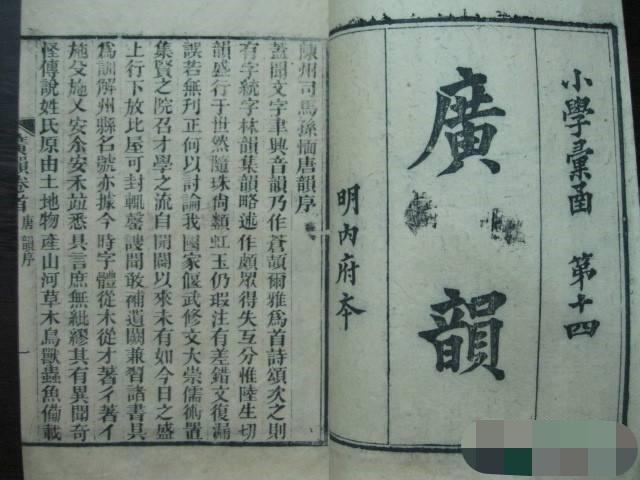 小學彙函 第十四
廣韻
明內府本
陳州司馬孫愐唐韻序
蓋聞文字聿興音韻乃作蒼頡爾雅為首詩頌次之則
有字統字林韻集韻略述作頗眾得失互分惟陸生切
韻盛行于世然隨珠尚纇虹玉仍瑕注有差錯文復漏
誤若無刊正何以討論我國家偃武修文大崇儒術置
集賢之院召才學之流自開闢以來未有如今日之盛
上行下放比屋可封輒罄謏聞敢補遺闕兼習諸書具
為訓解州縣名號亦據今時字體從木從才著彳著亻
施殳施攴安尒安禾竝悉具言庶無紕繆其有異聞奇
怪傳說姓氏原由土地物產山河草木鳥獸蟲魚備載
廣韻卷首 唐韻序 一